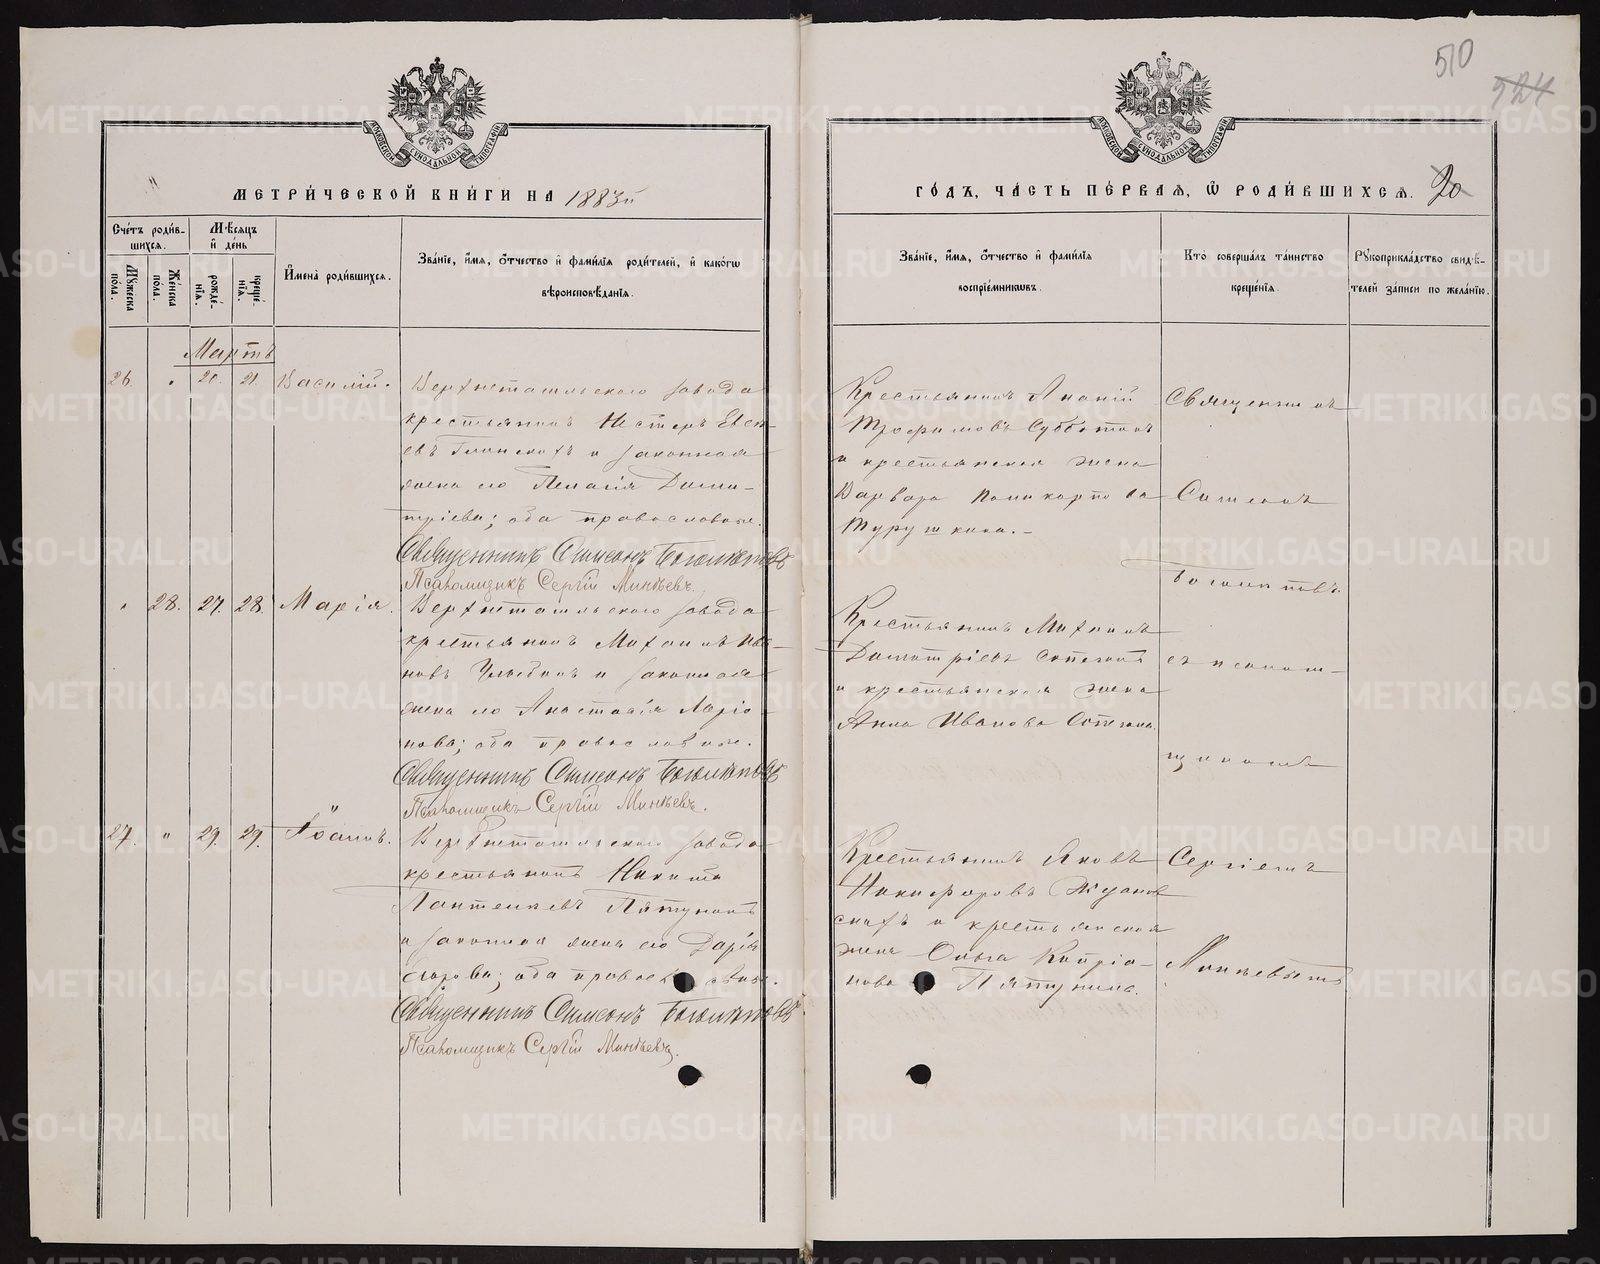 510
524
МОСКОВСКОЙ СѴНОДАЛЬНОЙ ТИПОГРАФІИ
МОСКОВСКОЙ СѴНОДАЛЬНОЙ ТИПОГРАФІИ
МЕТРИ́ЧЕСКОЙ КНИ́ГИ НА 1883й
ГО́ДЪ, ЧА́СТЬ ПЕ́РВАЯ, Ѿ РОДИ́ВШИХСЯ. 20
Сче́тъ роди́в-
шихся.
Му́жеска по́ла.
Же́нска по́ла.
Мѣ́сяцъ и́ де́нь
рожде́-
нїя.
креще́-
нїя.
И҆мена̀ роди́вшихся.
Зва́нїе, и҆́мя, ѻ҆́тчество и҆ фами́лїя роди́телей, и҆ како́гѡ
вѣроисповѣ́данїя.
Зва́нїе, и҆́мя, ѻ҆́тчество и҆ фами́лїя
воспрїе́мникѡвъ.
Кто̀ соверша́лъ та́инство
креще́нїя.
Рꙋкоприкла́дство свидѣ́-
телей за́писи по жела́нїю.
Мартъ
26. " 20. 21. Василій.
Верхнетагильскаго завода
крестьянинъ Несторъ Евсе-
евъ и законная
жена его Пелагія Дими-
тріева; оба православные.
Священникъ Симеонъ Боголѣповъ
Псаломщикъ Сергій Минѣевъ.
Крестьянинъ Ананій
Трофимовъ Субботинъ
и крестьянская жена
Варвара Поликарпова
Турушкина.
Священникъ
Симеонъ
Боголѣповъ
" 28. 27. 28. Марія.
Верхнетагильскаго завода
крестьянинъ Михаилъ Ива-
новъ и законная
жена его Анастасія Ларіо-
нова; оба православные.
Священникъ Симеонъ Боголѣповъ
Псаломщикъ Сергій Минѣевъ.
Крестьянинъ Михаилъ
Димитріевъ
и крестьянская жена
Анна Иванова
съ псалом-
щикомъ
27. " 29. 29. Іоаннъ.
Верхнетагильскаго завода
крестьянинъ Никита
Пантелеевъ Пятунинъ
и законная жена его Дарія
оба православные.
Священникъ Симеонъ Боголѣповъ
Псаломщикъ Сергій Минѣевъ.
Крестьянинъ Яковъ
Никифоровъ Ждanов
скихъ и крестьянская
жена Ольга Кипріа-
нова Пятунина.
Сергіемъ
Минѣевымъ
METRIKI.GASO-URAL.RU